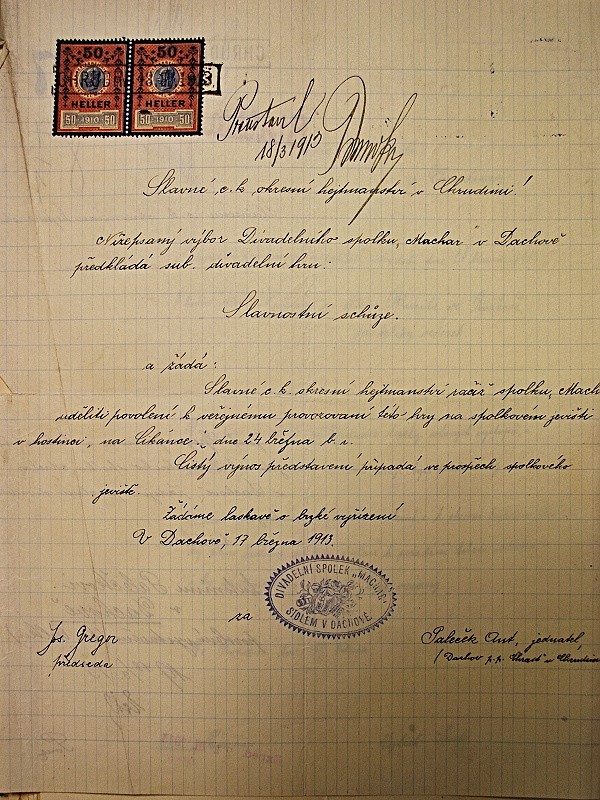 50 50
HELLER HELLER
50 1910 50 50 1910 50
18/3 1913
Slavné c. k. okresní hejtmanství v Chrudimi!
Nížepsaný výbor Divadelního spolku „Machar" v Dachově
předkládá sub. divadelní hru:
Slavnostní schůze.
a žádá:
Slavné c. k. okresní hejtmanství račiž spolku „Mach
uděliti povolení k veřejnému provozování této hry na spolkovém jevišti
v hostinci „na Cikánce" dne 24 března t. r.
Čistý výnos představení připadá ve prospěch spolkového
jeviště.
Žádáme laskavě o brzké vyřízení
V Dachově, 17 března 1913.
DIVADELNÍ SPOLEK „MACHAR"
SÍDLEM V DACHOVĚ
za
Jos. Gregor
předseda
Paleček Ant, jednatel,
/Dachov p. p. Chrast u Chrudimi